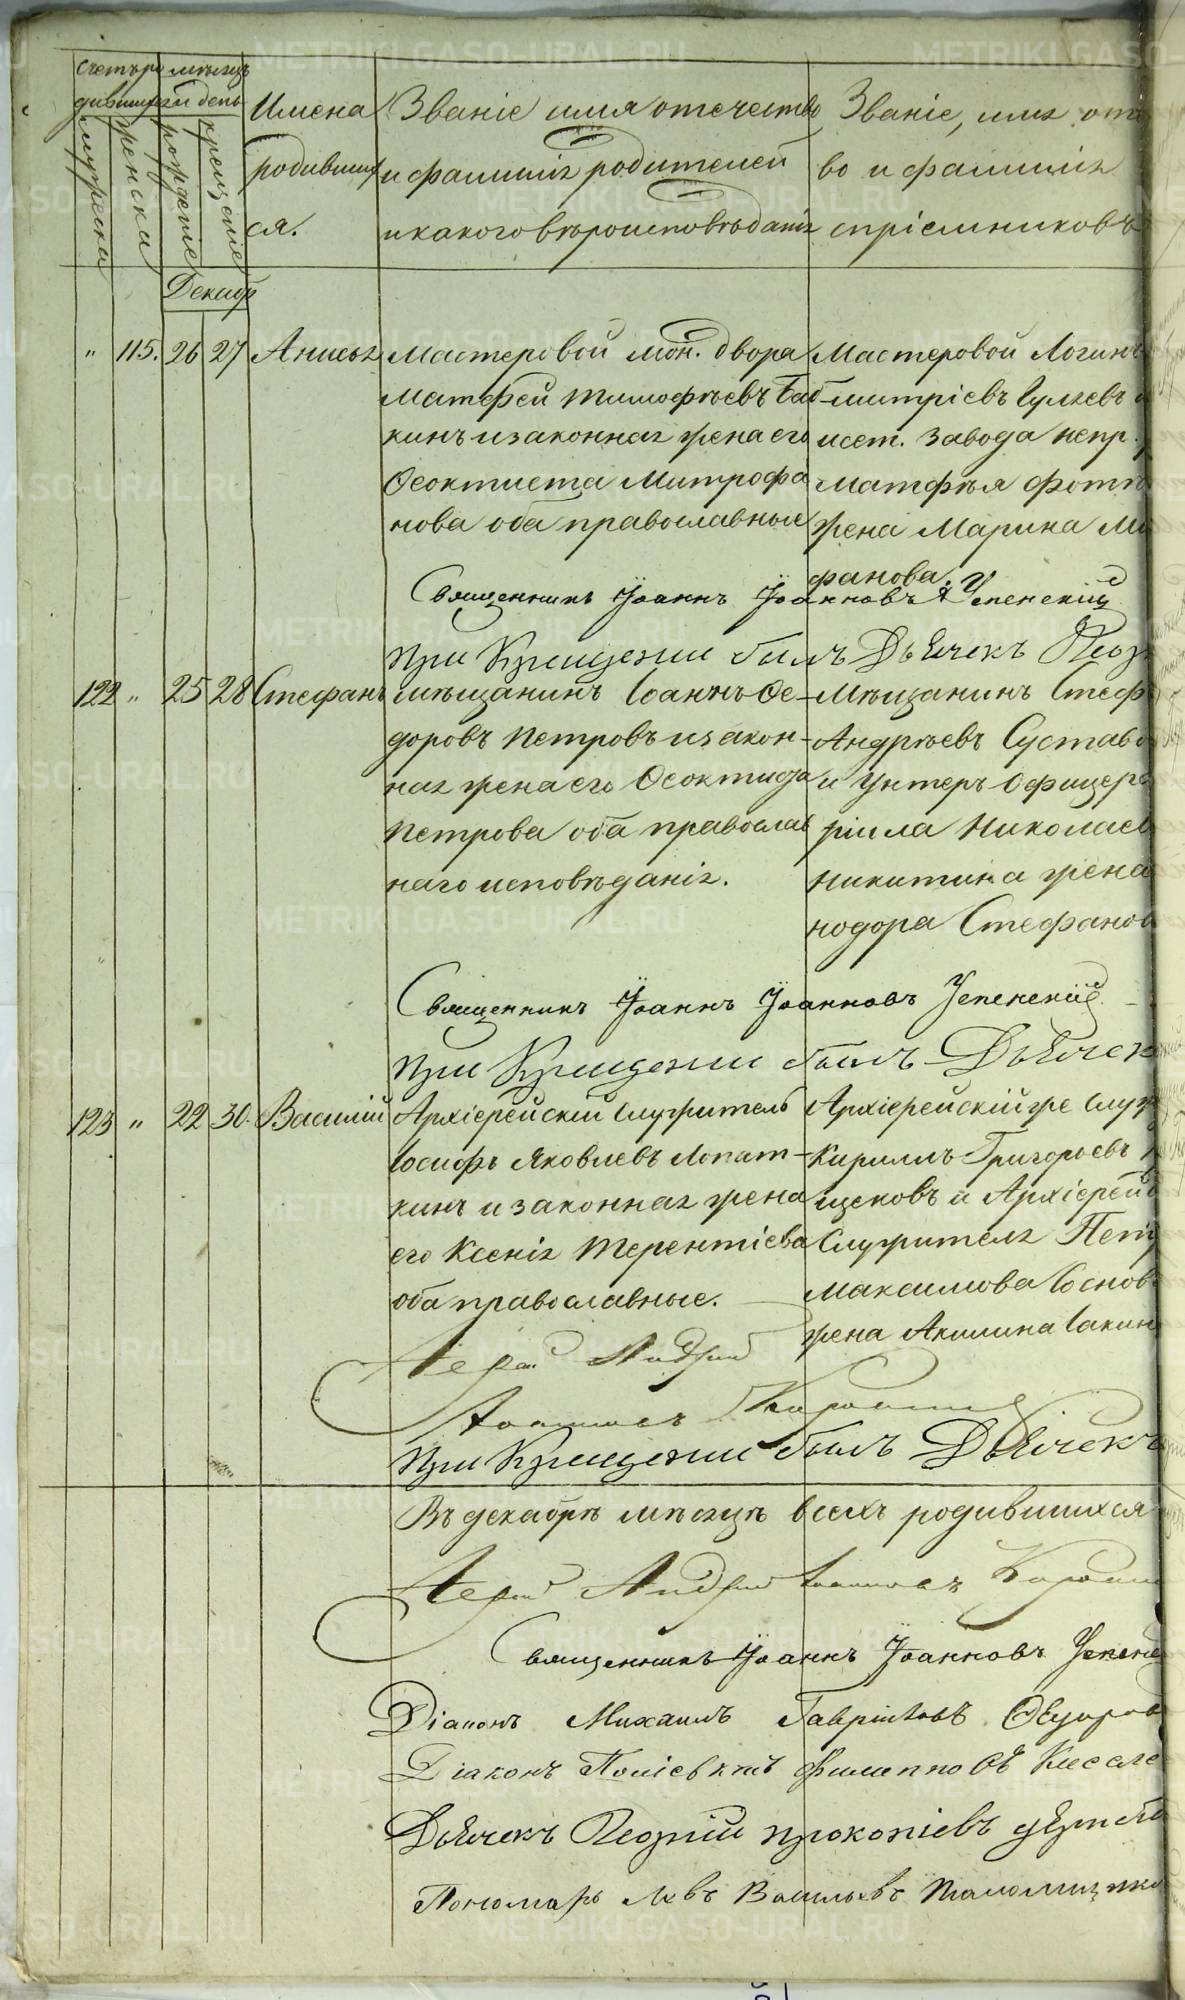 Счетъ ро мѣсяцъ
дившихся и день
мужеска
женска
рожденіе
крещеніе
Имена
родивших
ся.
Званіе имя отечество
и фамилія родителей
и какого вѣроисповѣданія
Званіе, имя оте
во и фамилія
спріемниковъ
Декабр
" 115. 26 27 Анисья
Мастеровой мон. двора
Матфей Тимофѣевъ Баб-
кинъ и законная жена его
Ѳеоктиста Митрофа
нова оба православные
Мастеровой Логинъ
митріевъ Гуляевъ и
исет. завода непр.
Матфѣя Фоти
жена Марина Ми
фанова.
Священникъ Іоаннъ Іоанновъ Успенскій
При Крещеніи былъ Дьячекъ
122 " 25 28 Стефанъ
мѣщанинъ Іоаннъ Ѳе-
доровъ Петровъ и закон-
ная жена его Ѳеоктиста
Петрова оба православ
наго исповѣданія.
Мѣщанинъ Стеф
Андреевъ Сустав
и Унтеръ Офицера
рилла Николаев
Никитина жена
нодора Стефанов
Священникъ Іоаннъ Іоанновъ Успенскій
При Крещеніи былъ Дьячек
123 " 22 30. Василій
Архіерейскій служитель
Іосифъ Яковлевъ Лопат-
кинъ и законная жена
его Ксенія Терентіева
оба православные.
Архіерейскій же служ
Кириллъ Григорьевъ
щековъ и Архіерейс
Служителя Пет
Максимова Соснов
жена Акилина Іакин
Іерей Андрей
Іоанновъ
При Крещеніи былъ Дьячекъ
Въ декабрѣ мѣсяцѣ всехъ родившихся
Іерей Андрей Іоанновъ
Священникъ Іоаннъ Іоанновъ Успенс
Діаконъ Михаилъ Гавріиловъ
Діаконъ Поліевктъ Филипповъ Киселе
Дьячекъ Георгій Прокопіевъ
Пономарь Левъ Васильевъ
METRIKI.GASO-URAL.RU